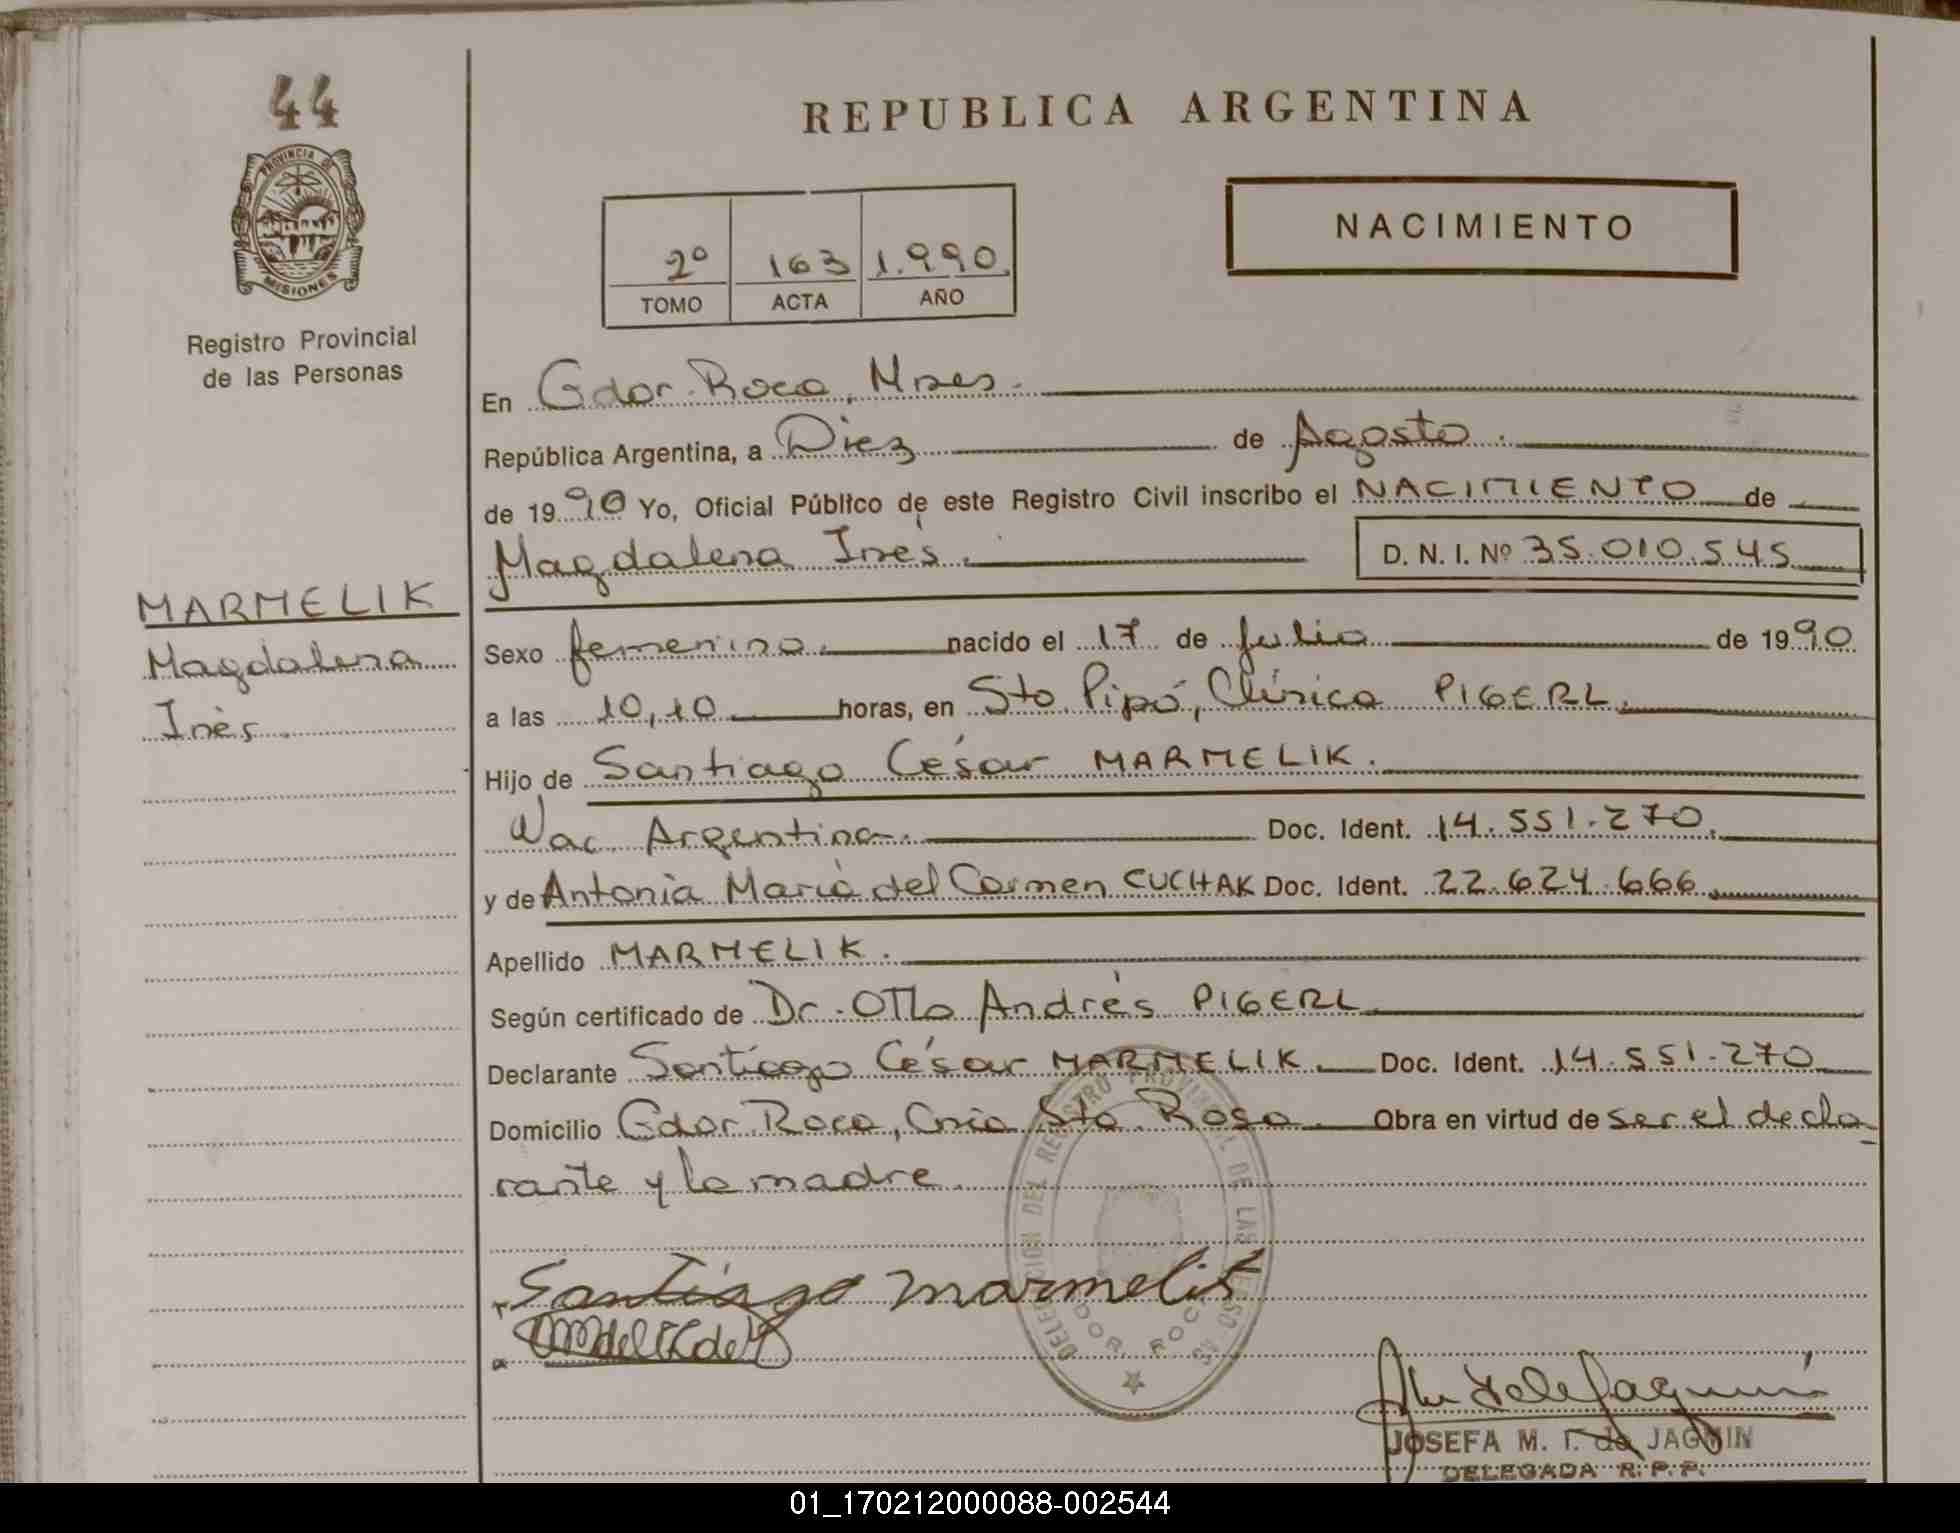 44
REPUBLICA ARGENTINA
PROVINCIA DE
MISIONES
NACIMIENTO
2º 163 1.990
TOMO ACTA AÑO
Registro Provincial
de las Personas
En Gdor. Roca, Mnes.
República Argentina, a Diez de Agosto.
de 1990 Yo, Oficial Público de este Registro Civil inscribo el NACIMIENTO de
Magdalena Inés. D. N. I. Nº 35.010.545
MARMELIK
Magdalena
Inés.
Sexo femenino. nacido el 17 de Julio de 1990
a las 10,10 horas, en Sto. Pipó, Clínica PIGERL.
Hijo de Santiago César MARMELIK.
Nac. Argentina. Doc. Ident. 14.551.270.
y de Antonia María del Carmen CUCHAK Doc. Ident. 22.624.666.
Apellido MARMELIK.
Según certificado de Dr. Otto Andrés PIGERL
Declarante Santiago César MARMELIK. Doc. Ident. 14.551.270
Domicilio Gdor. Roca, Cnia Sta. Rosa. Obra en virtud de ser el decla-
rante y la madre.
DELEGACION DEL REGISTRO PROVINCIAL DE LAS
GDOR. ROCA
Santiago Marmelik
JOSEFA M. T. de JAGMIN
DELEGADA R. P. P.
01_170212000088-002544